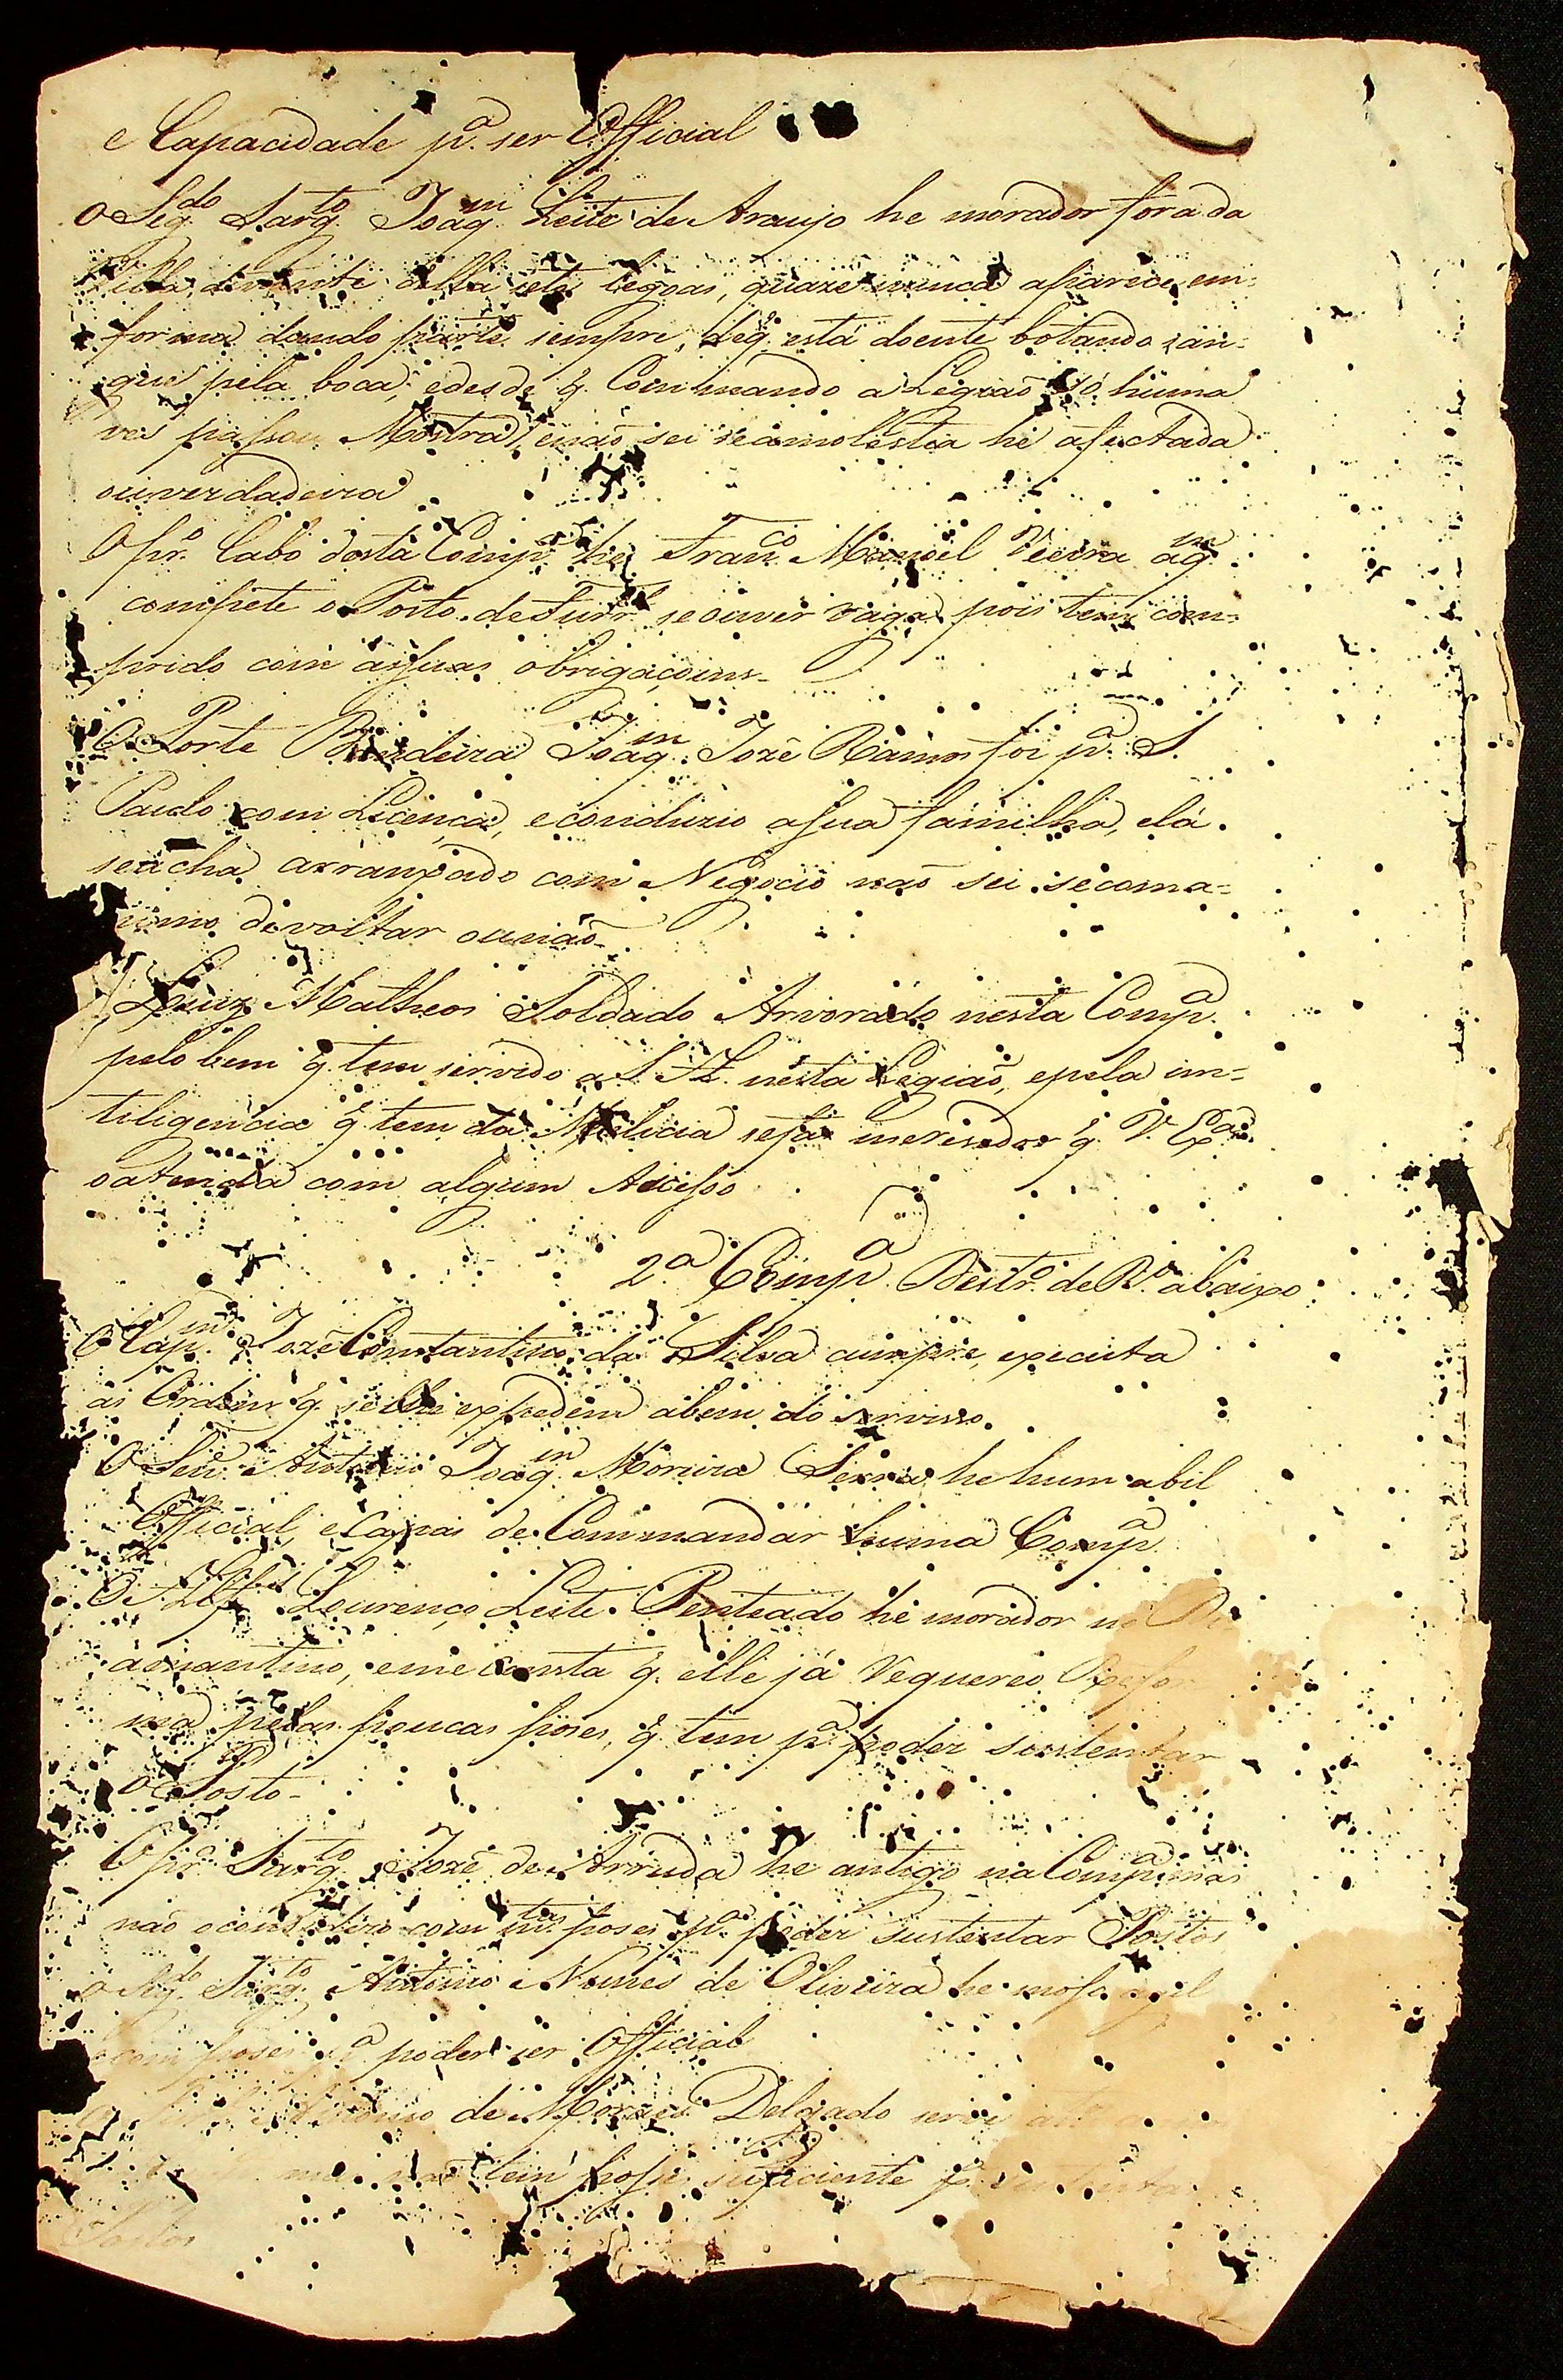 e Capacidade pᵃ. ser Official
O Segᵈᵒ. Sargᵗᵒ. Joaqᵐ. Leite de Araujo he morador fora da
Villa, distante della sete legoas, quaze nunca aparece em-
forma dando parte sempre, deq̃. está doente botando san-
gue pela boca, edesde q̃. Commando a Legiaõ só huma
ves passou Mostra, enaõ sei seamolestia he afectada
ouverdadeira
O prº. Cabo desta Compᵃ. he Francº. Manoel Vieira aqᵐ.
compete o Posto de Furrˡ. seouver vaga pois tem com-
prido com assuas obrigaçoins.
O Porte Bandeira Joaqᵐ. Jozé Ramos foi pᵃ. S.
Paulo com Licença, econduzio asua familha, elá
seacha arranxado com Negocio naõ sei secom a-
nimo devoltar ounaõ.
Luiz Matheos Soldado Arvorado nesta Compᵃ.
pelo bem q̃. tem servido a S. A. nesta Legiaõ, epela in-
teligencia q̃. tem da Melicia sefas merisedor q̃. V. Exᵃ.
oatenda com algum Acesso
2ᵃ. Compᵃ. Destrº. de Rº. abaixo
O Capᵐ. Jozé Constantino da Silva cumpre, execuita
as Ordens q̃. selhe expedem abem do servisso.
O Tenᵉ. Antonio Joaqᵐ. Moreira Serra he hum abil
Official, eCapas de Commandar huma Compᵃ.
O Alfˢ. Lourenço Leite Penteado he morador no Di
amantino, eme consta q̃. elle já requereo Refor
ma pelas poucas poses, q̃. tem pᵃ. poder sustentar
o Posto.
O prº. Sargᵗᵒ. Jozé de Arruda he antigo na Compᵃ. mas
naõ oconsidero com mᵗᵃˢ. poses pᵃ. poder sustentar Postos
o Segᵈᵒ. Sargᵗᵒ. Antonio Nunes de Oliveira he moso agil
ecom poses pᵃ. poder ser Official
Antonio de Moraes Delgado serve
mas naõ tem posse suficiente pᵃ.
Postos